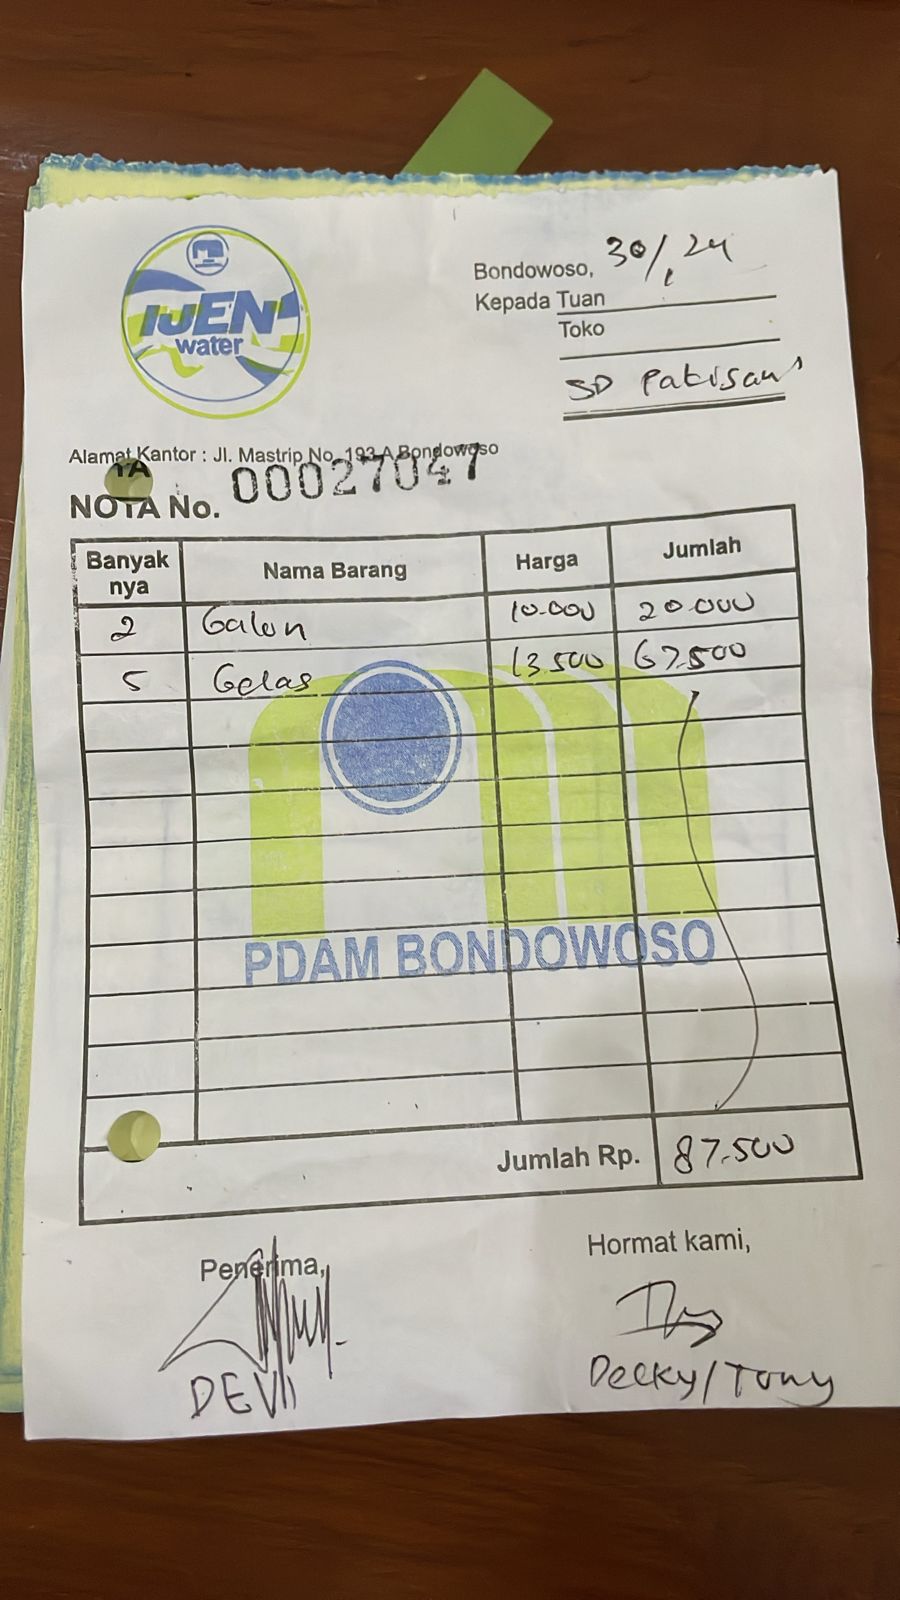 IJEN
water
Bondowoso, 30/1 24
Kepada Tuan
Toko
SD Pakisan
Alamat Kantor : Jl. Mastrip No. 193 A Bondowoso
NOTA No. 00027047
Banyak nya Nama Barang Harga Jumlah
2 Galon 10.000 20.000
5 Gelas 13.500 67.500
PDAM BONDOWOSO
Jumlah Rp. 87.500
Penerima, Hormat kami,
DEVI Decky/Tony